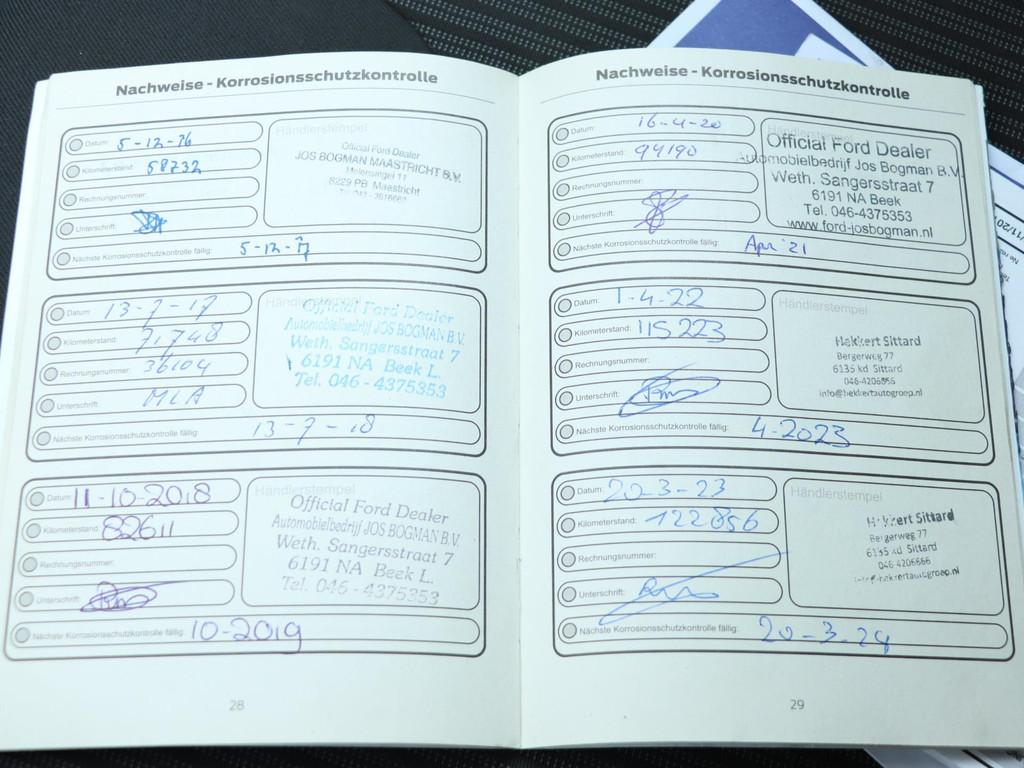 Nachweise - Korrosionsschutzkontrolle
Händlerstempel
Datum: 5-12-16
Kilometerstand: 58732
Rechnungsnummer:
Unterschrift:
Nächste Korrosionsschutzkontrolle fällig: 5-12-17
Official Ford Dealer
JOS BOGMAN MAASTRICHT B.V.
6229 PB Maastricht
Händlerstempel
Datum: 13-7-17
Kilometerstand: 71748
Rechnungsnummer: 36104
Unterschrift: MLA
Nächste Korrosionsschutzkontrolle fällig: 13-7-18
Official Ford Dealer
Automobielbedrijf JOS BOGMAN B.V.
Weth. Sangersstraat 7
6191 NA Beek L.
Tel. 046 - 4375353
Händlerstempel
Datum: 11-10-2018
Kilometerstand: 82611
Rechnungsnummer:
Unterschrift:
Nächste Korrosionsschutzkontrolle fällig: 10-2019
Official Ford Dealer
Automobielbedrijf JOS BOGMAN B.V.
Weth. Sangersstraat 7
6191 NA Beek L.
Tel. 046 - 4375353
28
Nachweise - Korrosionsschutzkontrolle
Datum: 16-4-20
Kilometerstand: 99190
Rechnungsnummer:
Unterschrift:
Nächste Korrosionsschutzkontrolle fällig: Apr '21
Händlerstempel
Official Ford Dealer
Automobielbedrijf Jos Bogman B.V.
Weth. Sangersstraat 7
6191 NA Beek
Tel. 046-4375353
www.ford-josbogman.nl
Datum: 1-4-22
Kilometerstand: 115223
Rechnungsnummer:
Unterschrift:
Nächste Korrosionsschutzkontrolle fällig: 4-2023
Händlerstempel
Hekkert Sittard
Bergerweg 77
6135 kd Sittard
info@hekkertautogroep.nl
Datum: 20-3-23
Kilometerstand: 122856
Rechnungsnummer:
Unterschrift:
Nächste Korrosionsschutzkontrolle fällig: 20-3-24
Händlerstempel
Hekkert Sittard
Bergerweg 77
6135 kd Sittard
046 4206666
29